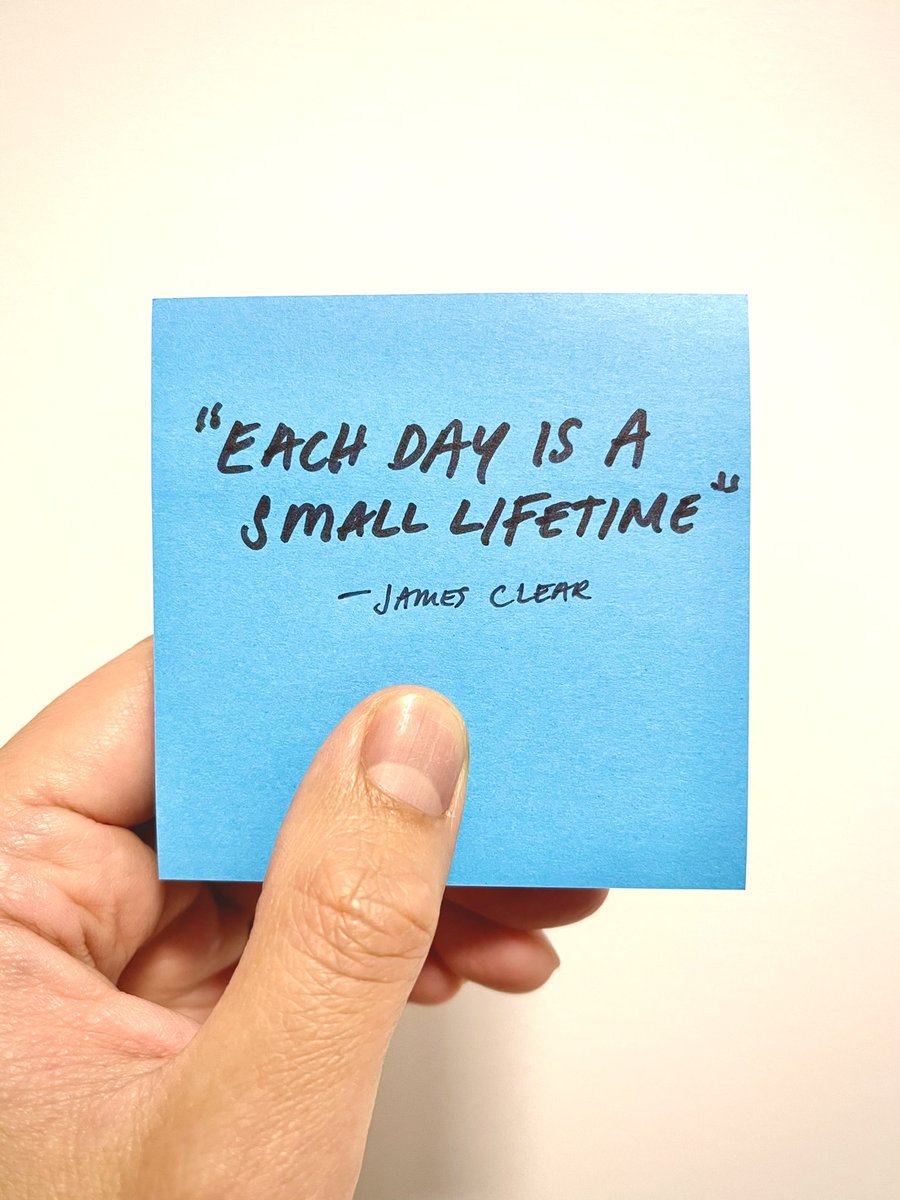 "EACH DAY IS A
SMALL LIFETIME"
—JAMES CLEAR